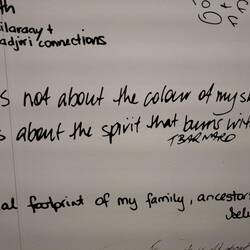 th
ilaraay +
adjuri connections
s not about the colour of my s
s about the spirit that burns wit
T BARNARD
al footprint of my family, ancestors